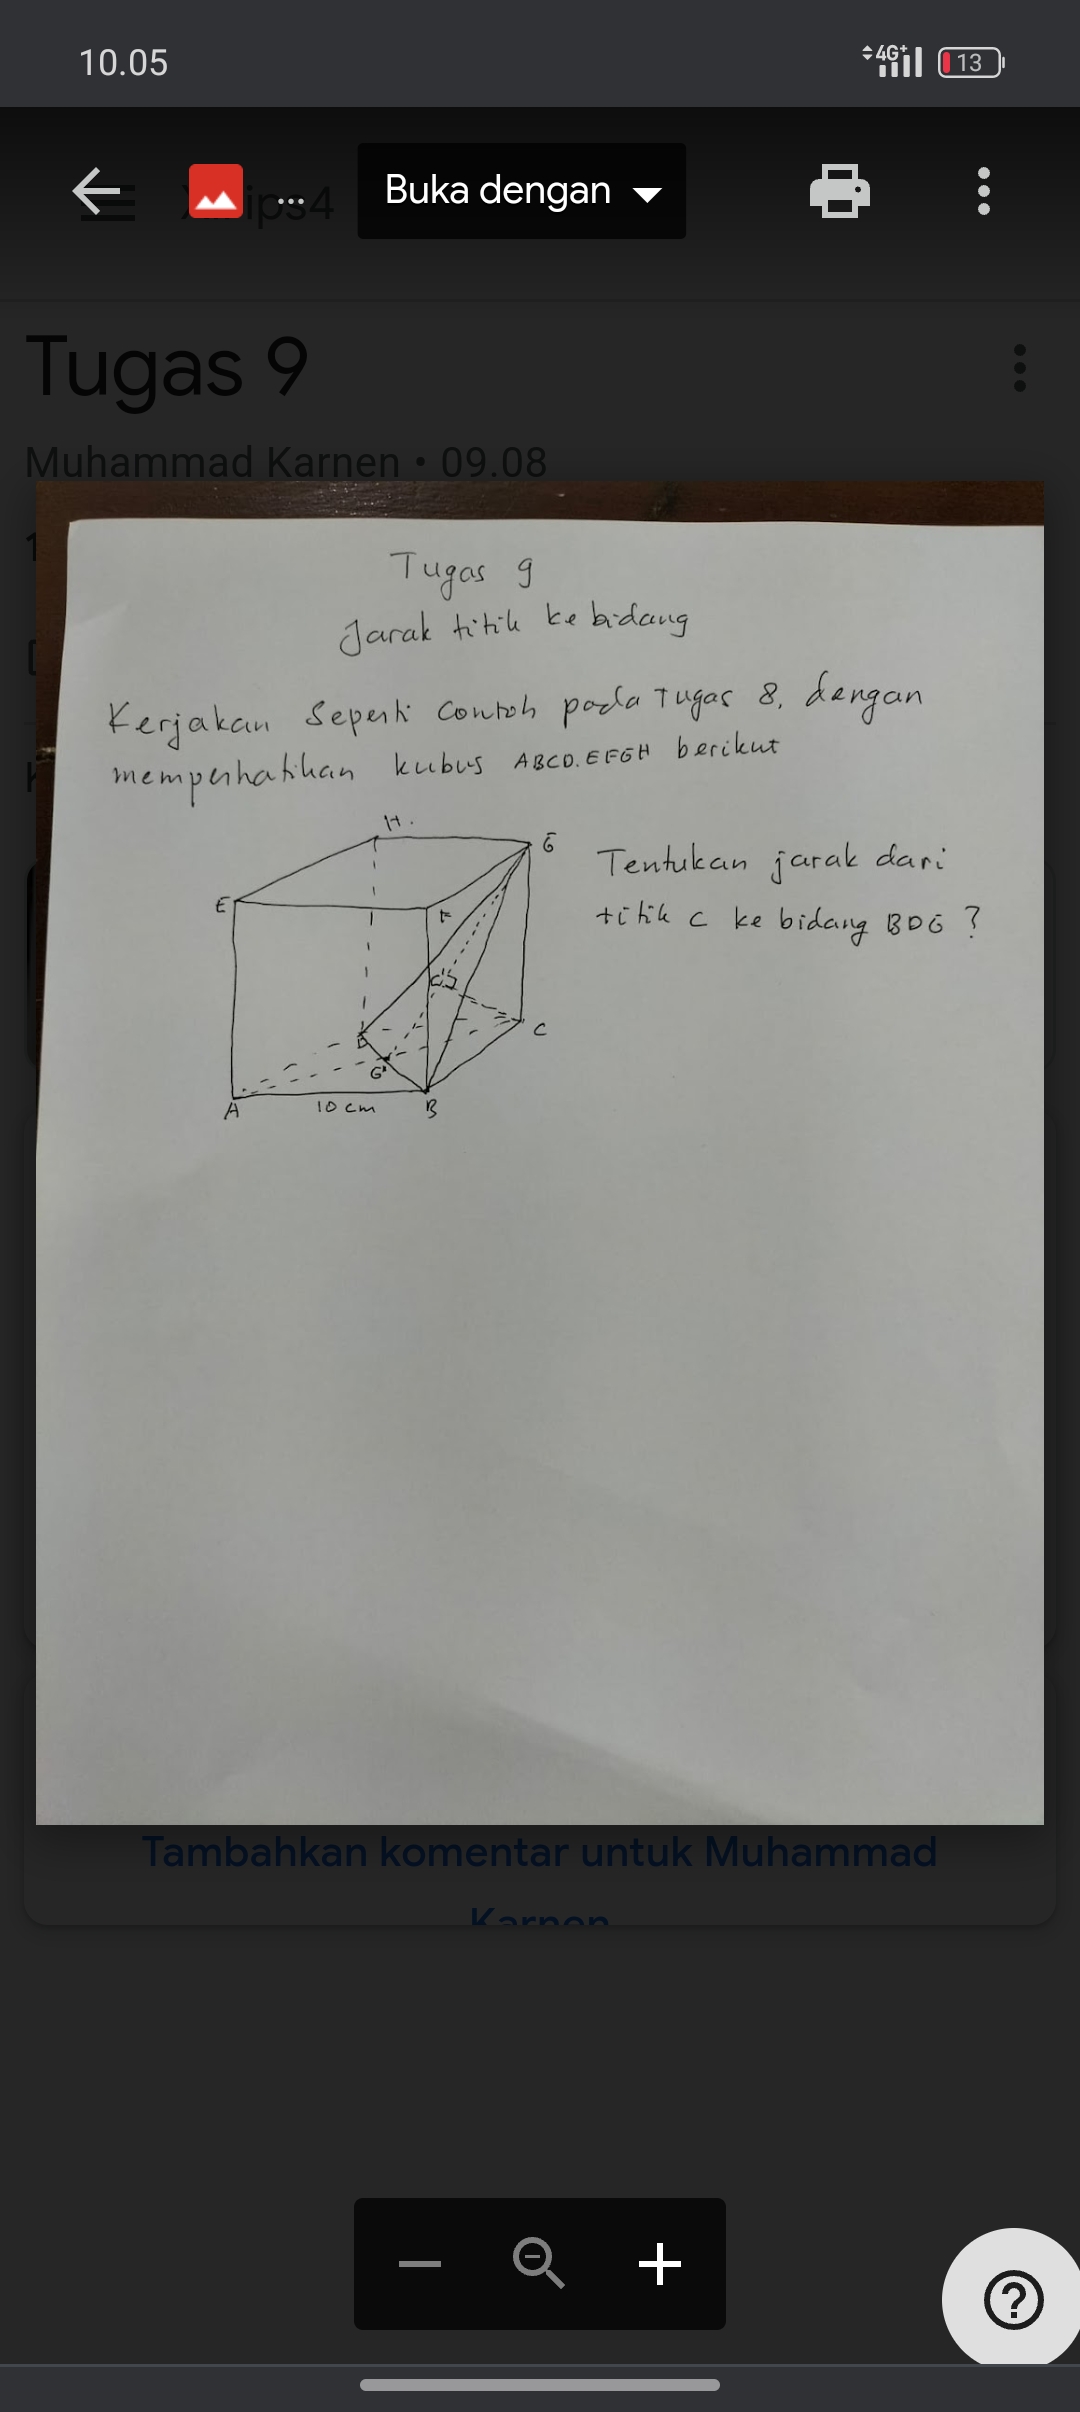 10.05
4G+
13
ips4
...
Buka dengan
Tugas 9
Muhammad Karnen • 09.08
Tugas 9
Jarak titik ke bidang
Kerjakan Seperti Contoh pada Tugas 8, dengan
memperhatikan kubus ABCD.EFGH berikut
H.
G
E
F
Tentukan jarak dari
titik C ke bidang BDG ?
C'
D
C
G'
A
10 cm
B
Tambahkan komentar untuk Muhammad
Karnen